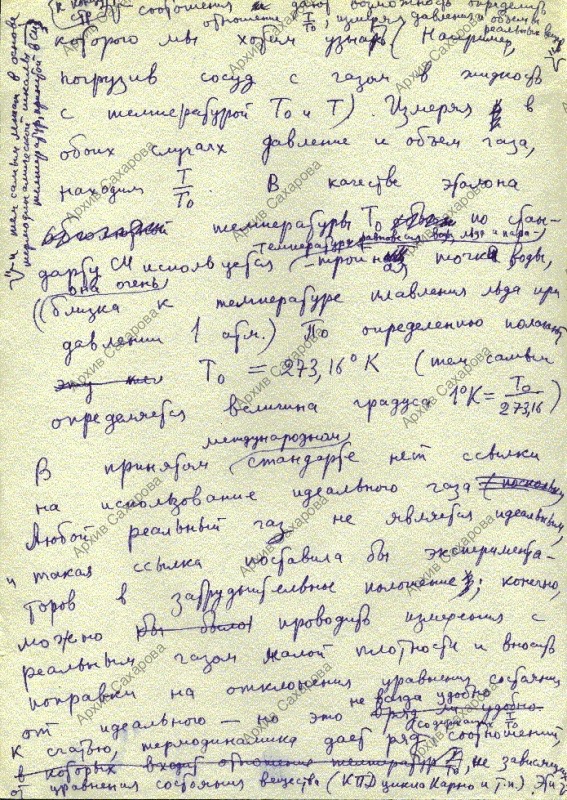 соотношения дают возможность определить
отношение T/T₀, измеряя давления и объемы
реальных
которого мы хотим узнать (например,
погрузив сосуд с газом в жидкость
с температурой T₀ и T). Измеряя в
обоих случаях давление и объем газа,
находим T/T₀. В качестве эталона
температуры T₀ по стан-
температура равновесия воды, льда и пара
дарту СИ используется тройная точка воды,
она очень
(близка к температуре плавления льда при
давлении 1 атм.) По определению полагают
T₀ = 273,16°K (тем самым
определяется величина градуса 1°K = T₀/273,16)
международном
В принятом стандарте нет ссылки
на использование идеального газа
Любой реальный газ не является идеальным,
и такая ссылка поставила бы эксперимента-
торов в затруднительное положение; конечно,
можно проводить измерения с
реальным газом малой плотности и вносить
поправки на отклонения уравнения состояния
не всегда удобно
от идеального — но это
содержащих T/T₀
К счастью, термодинамика дает ряд соотношений,
в которых входит отношение температур T/T₀, не зависящих
от уравнения состояния вещества (КПД цикла Карно и т.п.). Эти
и тем самым лежит в основе
термодинамической шкалы
температур, принятой в СИ
Архив Сахарова